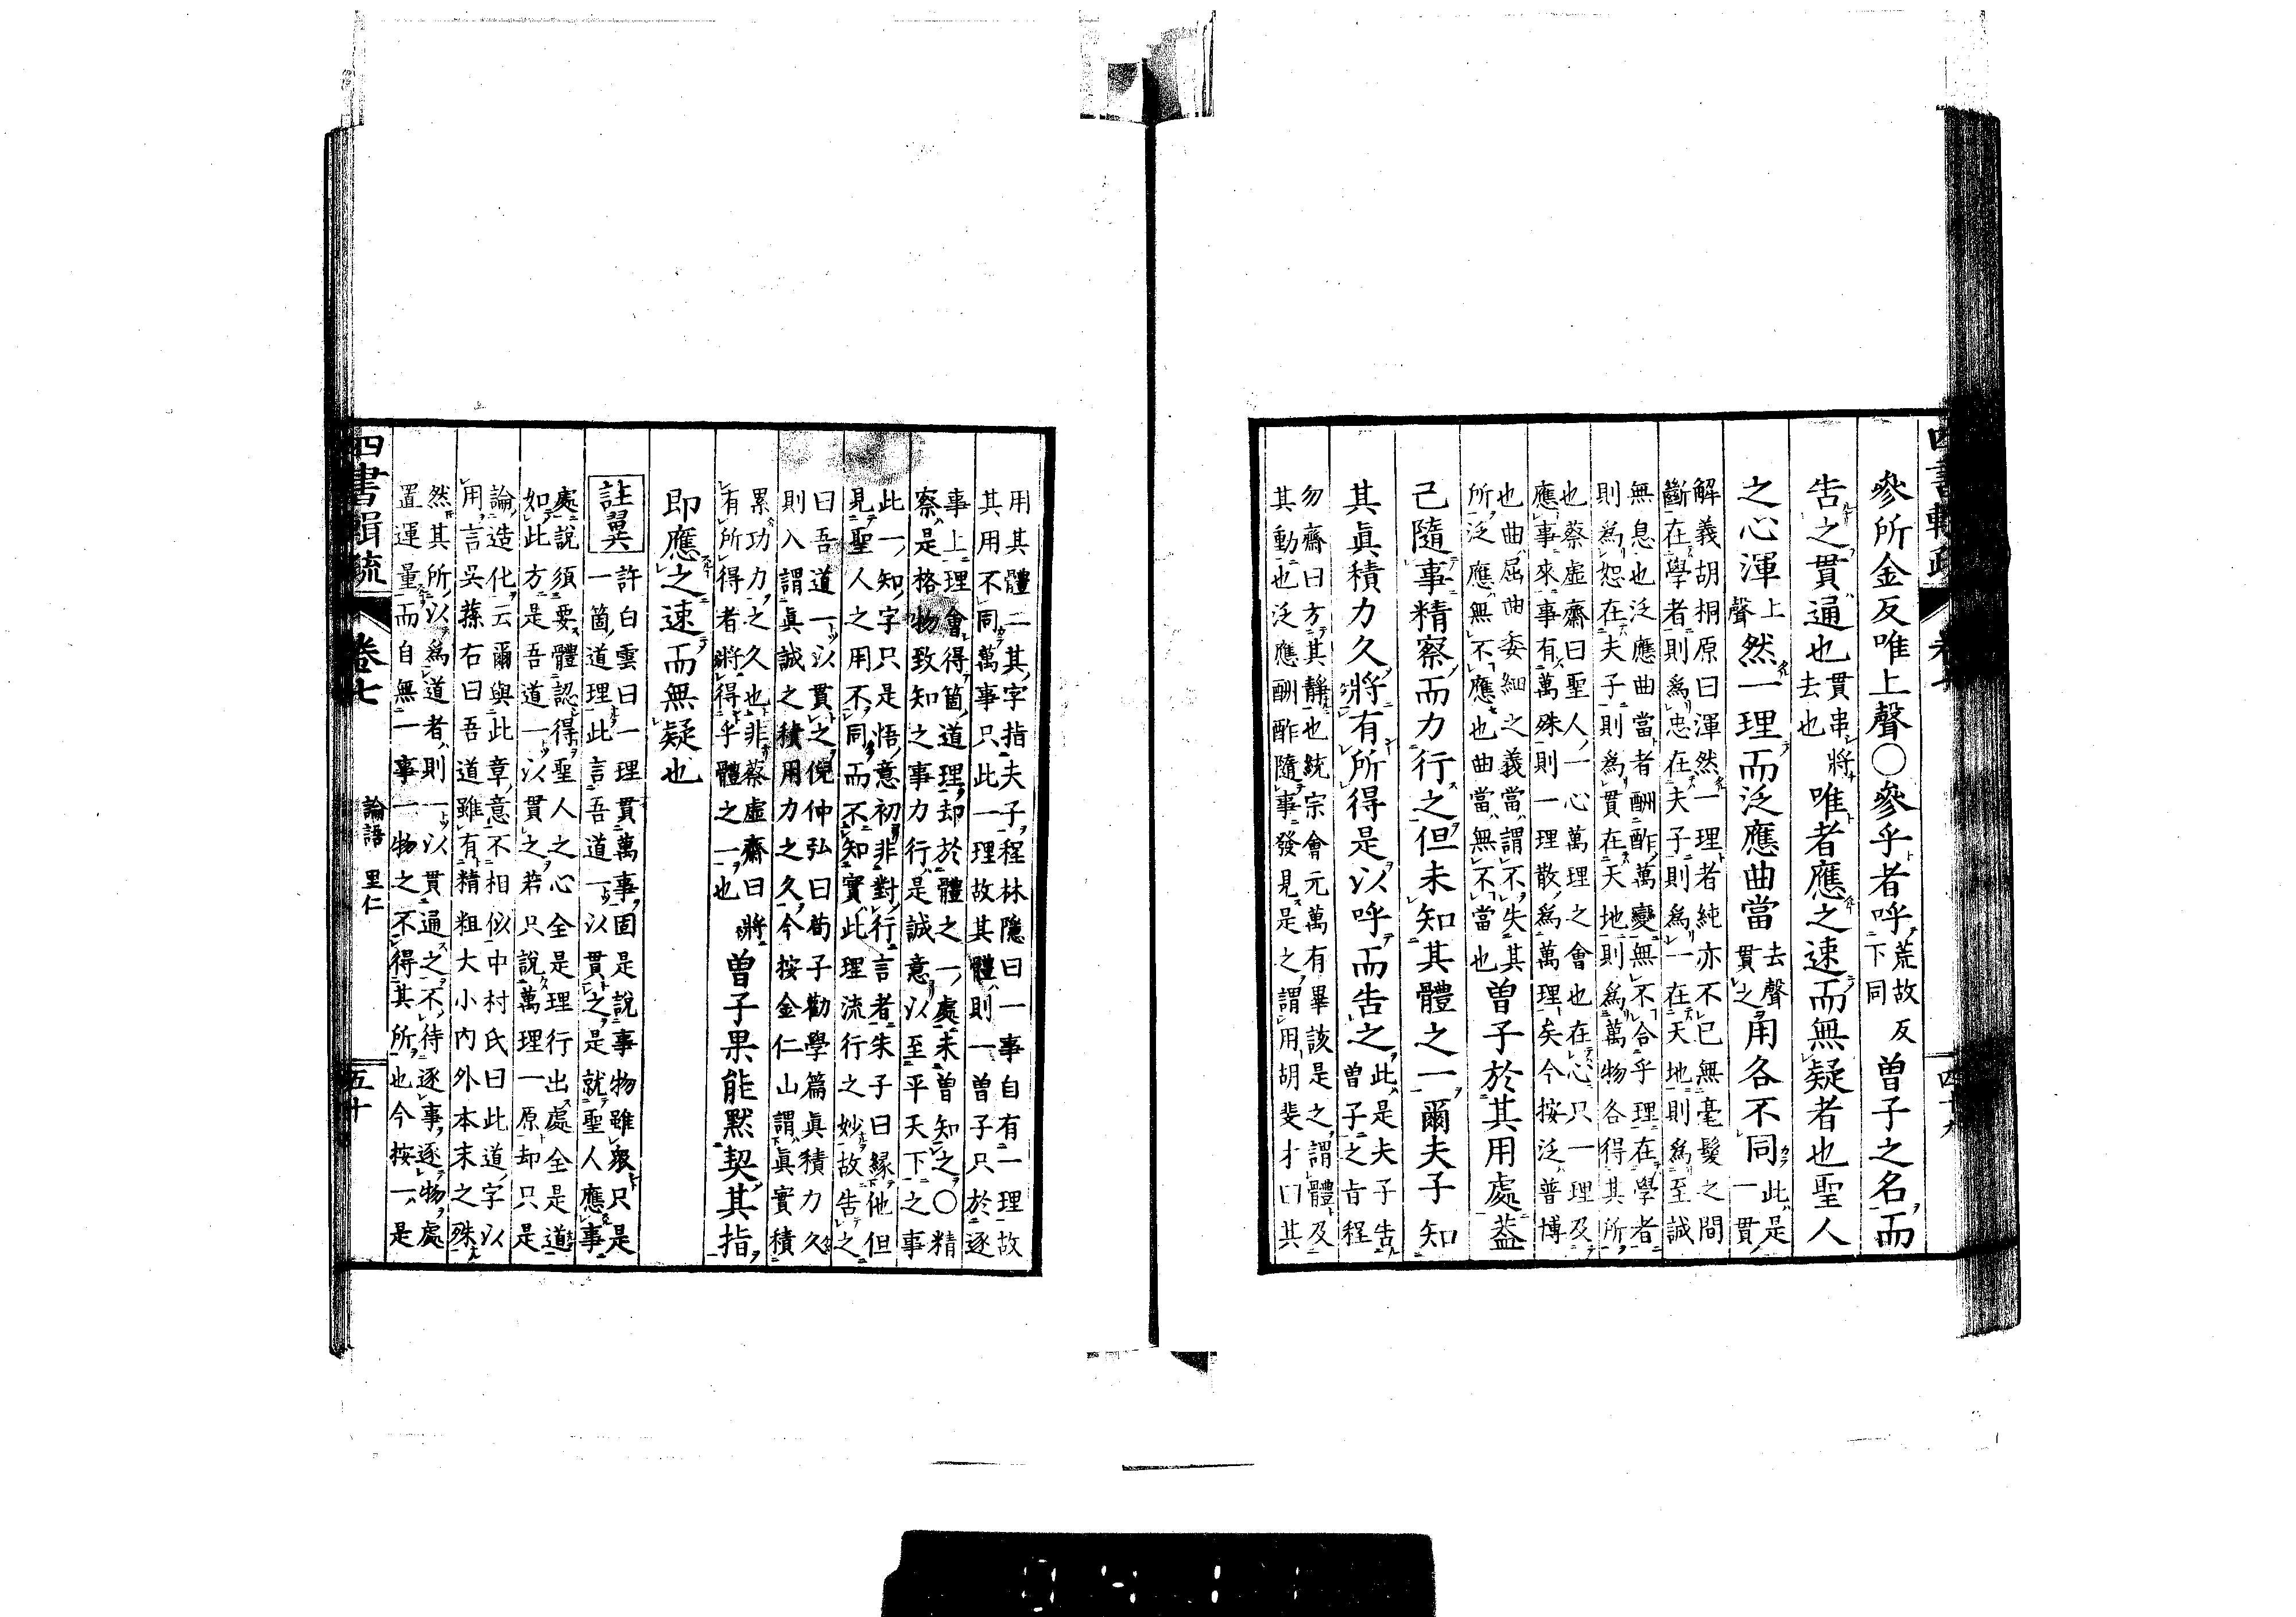 參所金反唯上聲○參乎者呼荒故反下同曾子之名而
告之貫通也貫串將去也唯者應之速而無疑者也聖人
之心渾上聲然一理而泛應曲當去聲貫之用各不同此是一貫
解義胡桐原曰渾然一理者純亦不已無毫髮之間
斷在學者則爲忠在夫子則爲一在天地則爲至誠
無息也泛應曲當者酬酢萬變無不合乎理在學者
則爲恕在夫子則爲貫在天地則爲萬物各得其所
也蔡虛齋曰聖人一心萬理之會也在心只一理及
應事來事有萬殊則一理散爲萬理矣今按泛普博
也曲屈曲委細之義當謂不失其
所泛應無不應也曲當無不當也曾子於其用處葢
己隨事精察而力行之但未知其體之一爾夫子知
其眞積力久將有所得是以呼而告之此是夫子告曾子之旨程
勿齋曰方其靜也統宗會元萬有畢該是之謂體及
其動也泛應酬酢隨事發見是之謂用胡斐才曰其
用其體二其字指夫子程林隱曰一事自有一理故
其用不同萬事只此一理故其體則一曾子只於逐
事上理會得箇道理却於體之一處未曾知之○精
察是格物致知之事力行是誠意以至平天下之事
此一知字只是悟意初非對行言者朱子曰縁他但
見聖人之用不同而不知實此理流行之妙故告之
曰吾道一以貫之倪仲弘曰荀子勸學篇眞積力久
則入謂眞誠之積用力之久今按金仁山謂眞實積
累功力之久也非蔡虛齋曰將
有所得者將得乎體之一也曾子果能默契其指
即應之速而無疑也
註翼許白雲曰一理貫萬事固是說事物雖衆只是
一箇道理此言吾道一以貫之是就聖人應事
處說須要體認得聖人之心全是理行出處全是道
如此方是吾道一以貫之若只說萬理一原却只是
論造化云爾與此章意不相似中村氏曰此道字以
用言吳蓀右曰吾道雖有精粗大小內外本末之殊
然其所以爲道者則一以貫通之不待逐事逐物處
置運量而自無一事一物之不得其所也今按一是
四書輯疏 卷七 論語 里仁 五十